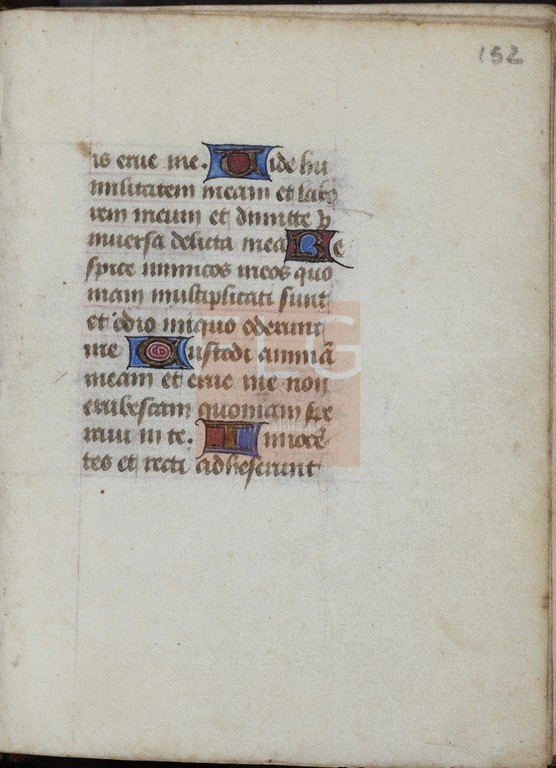 152
is erue me. Vide hu
militatem meam et labo
rem meum et dimitte
vniuersa delicta mea Re
spice inimicos meos quo
niam multiplicati sunt
et odio iniquo oderunt
me Custodi animā
meam et erue me non
erubescam quoniam spe
raui in te. Innocē
tes et recti adheserunt
LG